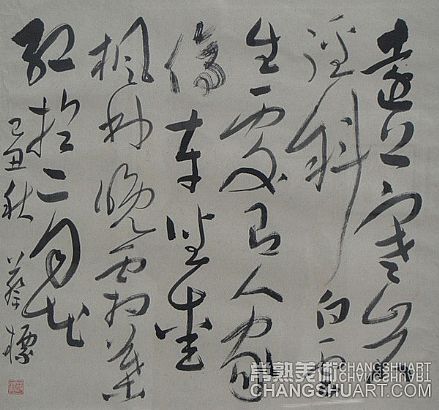 遠上寒山石
逕斜白雲
生處有人家
停車坐愛
楓林晚霜葉
紅於二月花
己丑秋 蔡
常熟美術 CHANGSHUART
CHANGSHUART.COM